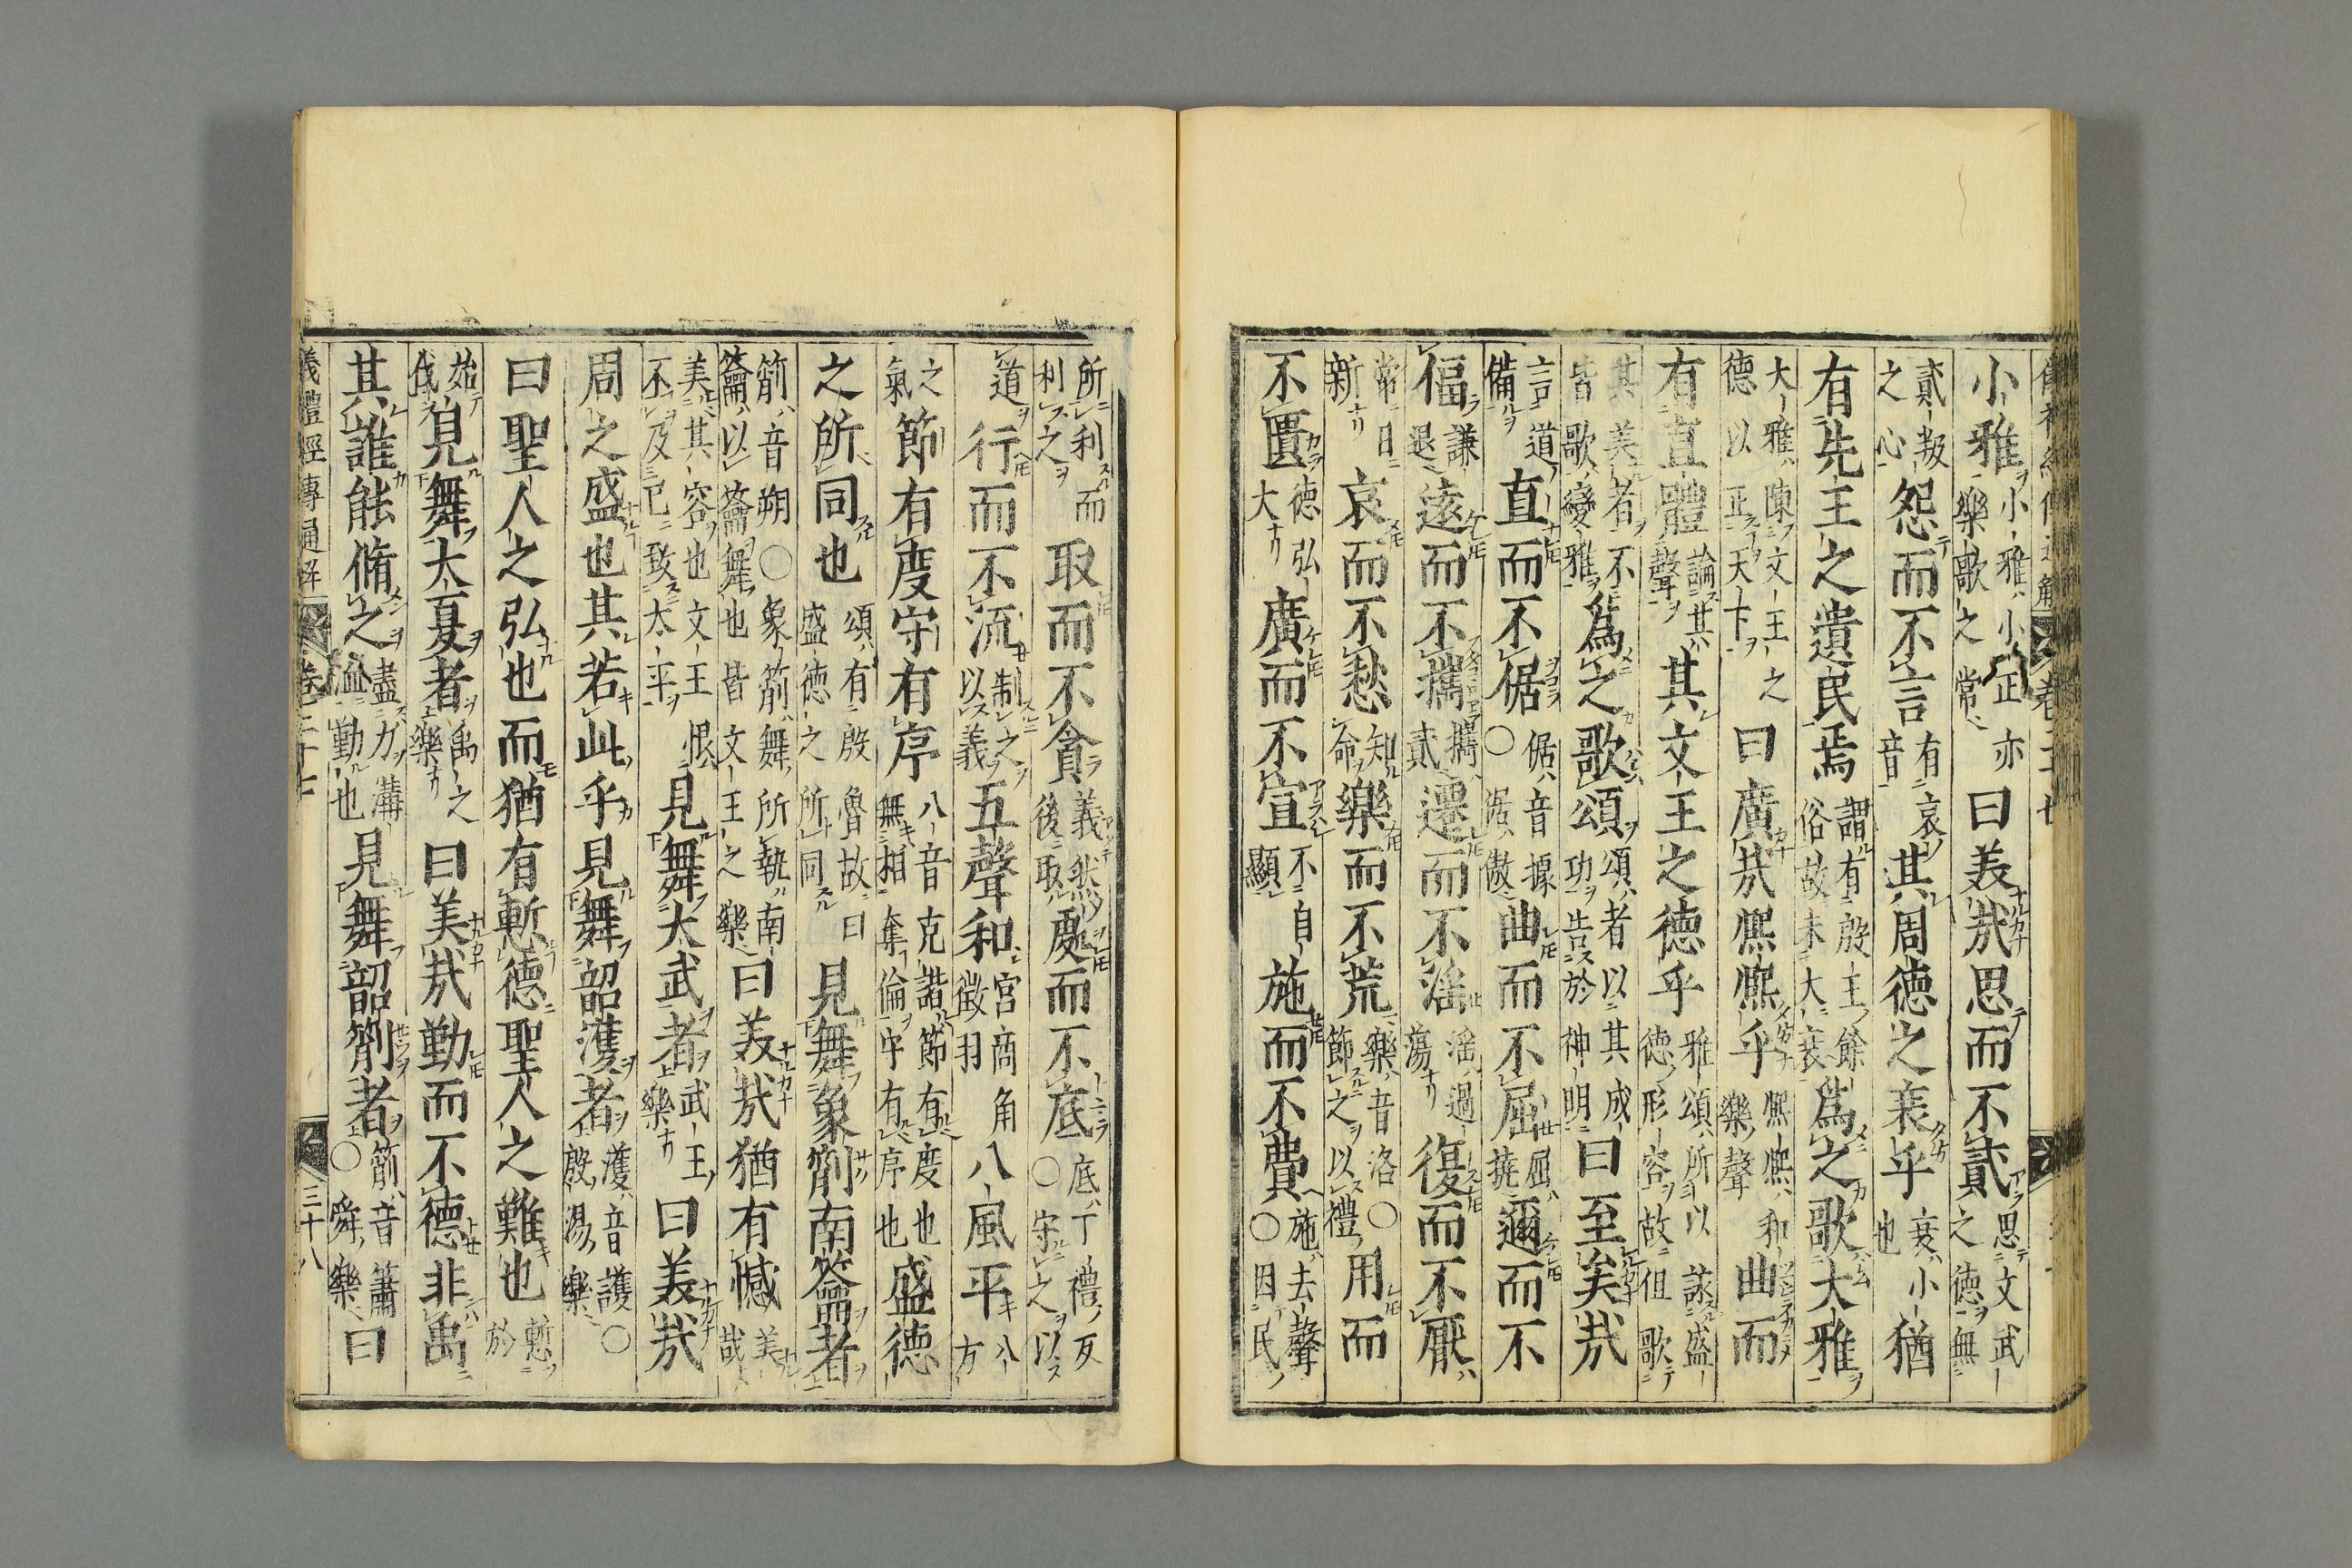 儀禮經傳通解 卷二十七
小雅小雅小正亦樂歌之常曰美哉思而不貳思文武之德無
貳叛之心怨而不言有哀音其周德之衰乎衰小也猶
有先王之遺民焉謂有殷王餘俗故未大衰爲之歌大雅
大雅陳文王之德以正天下曰廣哉熈熈乎熈熈和樂聲曲而
有直體論其聲其文王之德乎雅頌所以詠盛德形容故但歌
其美者不皆歌變雅爲之歌頌頌者以其成功告於神明曰至矣哉
言道備直而不倨倨音據○倨傲曲而不屈屈撓邇而不
偪謙退遠而不攜攜貳遷而不滛滛過蕩復而不厭
常日新哀而不愁知命樂而不荒樂音洛○節之以禮用而
不匱德弘大廣而不宣不自顯施而不費施去聲○因民
所利而利之取而不貪義然後取處而不底底丁禮反○守之以
道行而不流制之以義五聲和宮商角徵羽八風平八方
之氣節有度守有序八音克諧節有度也無相奪倫守有序也盛德
之所同也頌有殷魯故曰盛德之所同見舞象箾南籥者
箾音朔○象箾舞所執南籥以籥舞也皆文王之樂曰美哉猶有憾美哉
美其容也文王恨不及己致太平見舞大武者武王樂曰美哉
周之盛也其若此乎見舞韶濩者濩音護○殷湯樂
曰聖人之弘也而猶有慙德聖人之難也慙於
始伐見舞大夏者禹之樂曰美哉勤而不德非禹
其誰能脩之盡力溝洫勤也見舞韶箾者箾音簫○舜樂曰
儀禮經傳通解 卷二十七 三十八